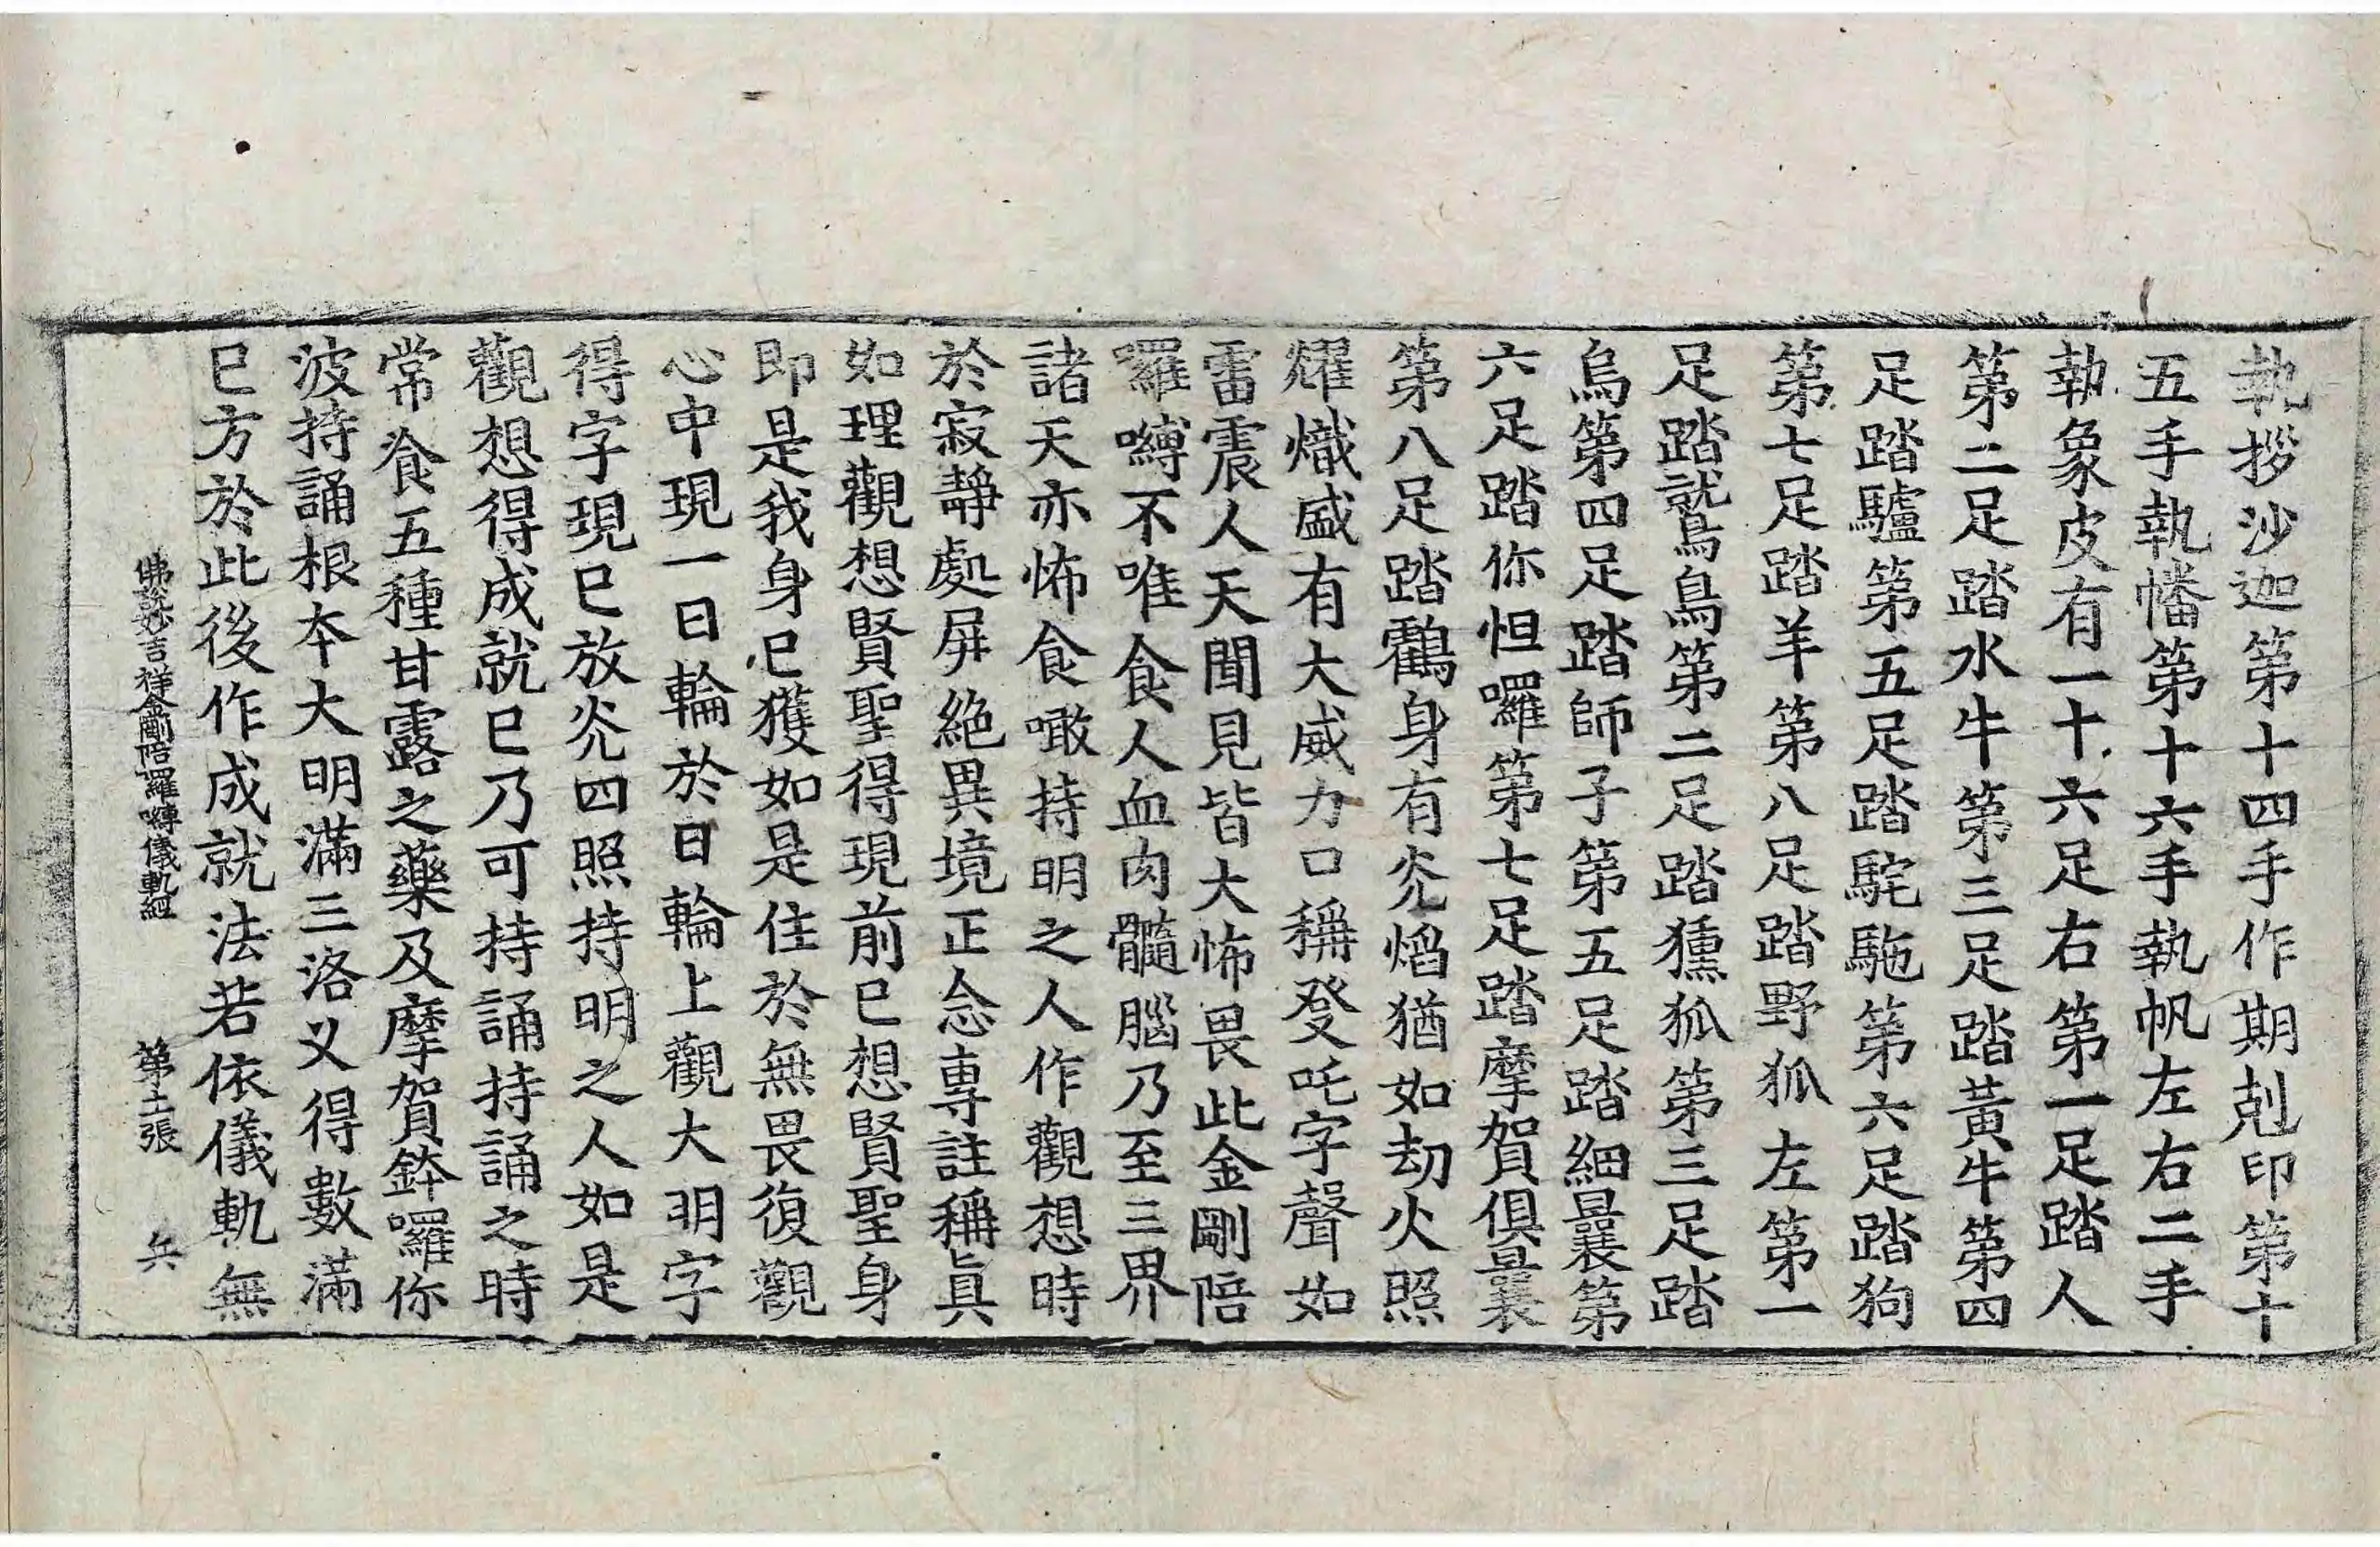 執拶沙迦第十四手作期剋印第十
五手執幡第十六手執帆左右二手
執象皮有一十六足右第一足踏人
第二足踏水牛第三足踏黃牛第四
足踏驢第五足踏駞駞第六足踏狗
第七足踏羊第八足踏野狐左第一
足踏鷲鳥第二足踏獯狐第三足踏
烏第四足踏師子第五足踏細曩第
六足踏你怛囉第七足踏摩賀俱曩
第八足踏鸖身有炎熖猶如劫火照
耀熾盛有大威力口稱發吒字聲如
雷震人天聞見皆大怖畏此金剛陪
羅嚩不唯食人血肉髓腦乃至三界
諸天亦怖食噉持明之人作觀想時
於寂靜處屏絕異境正念專註稱眞
如理觀想賢聖得現前已想賢聖身
即是我身已獲如是住於無畏復觀
心中現一日輪於日輪上觀大明字
得字現已放炎四照持明之人如是
觀想得成就已乃可持誦持誦之時
常飡五種甘露之藥及摩賀鉢囉你
波持誦根本大明滿三洛叉得數滿
已方於此後作成就法若依儀軌無
佛說妙吉祥金剛陪羅嚩儀軌經 第十二張 兵